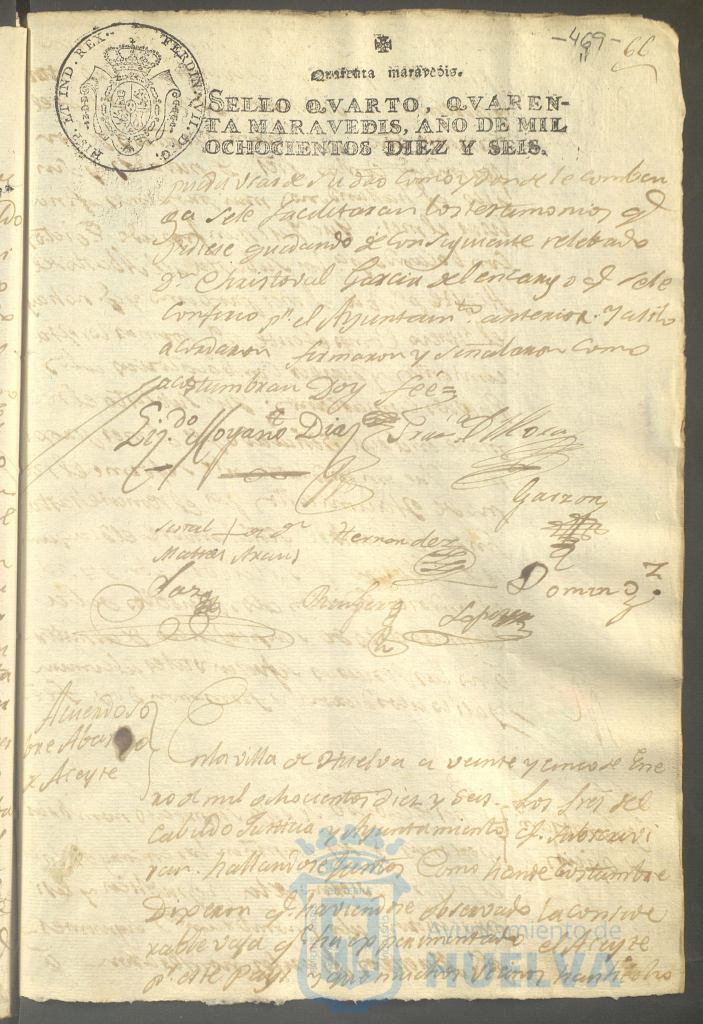 -469- 66
HISP. ET IND. REX. FERDIN. VII. D. G.
Quarenta maravedis.
SELLO QVARTO, QVAREN-
TA MARAVEDIS, AÑO DE MIL
OCHOCIENTOS DIEZ Y SEIS.
usar de su dro como y donde le comben
ga se le facilitaran los testimonios q.
pidiese quedando de consiguiente relebado
Dn. Christoval Garcia del encargo q. se le
confirio pr. el Ayuntamto. anterior. Y asi lo
acordaron firmaron y señalaron como
acostumbran Doy feé
Lizdo. Moyano Diaz Fran.
Garzon
señal + de
Matias Hernandez
Domingz.
Lopez
Acuerdo so
bre Abasto
de Aceyte
En la villa de Huelva a veinte y cinco de Ene
ro de mil ochocientos diez y seis. Los Sres. del
Cabildo Justicia y Ayuntamiento q. subscrivi
ran. hallandose Juntos como han de costumbre
Dixeron q. haviendose observado la conside
rable vaja q. ha experimentado el Aceyte
pr. este Pays y que muchos vecinos han
Ayuntamiento de
HUELVA